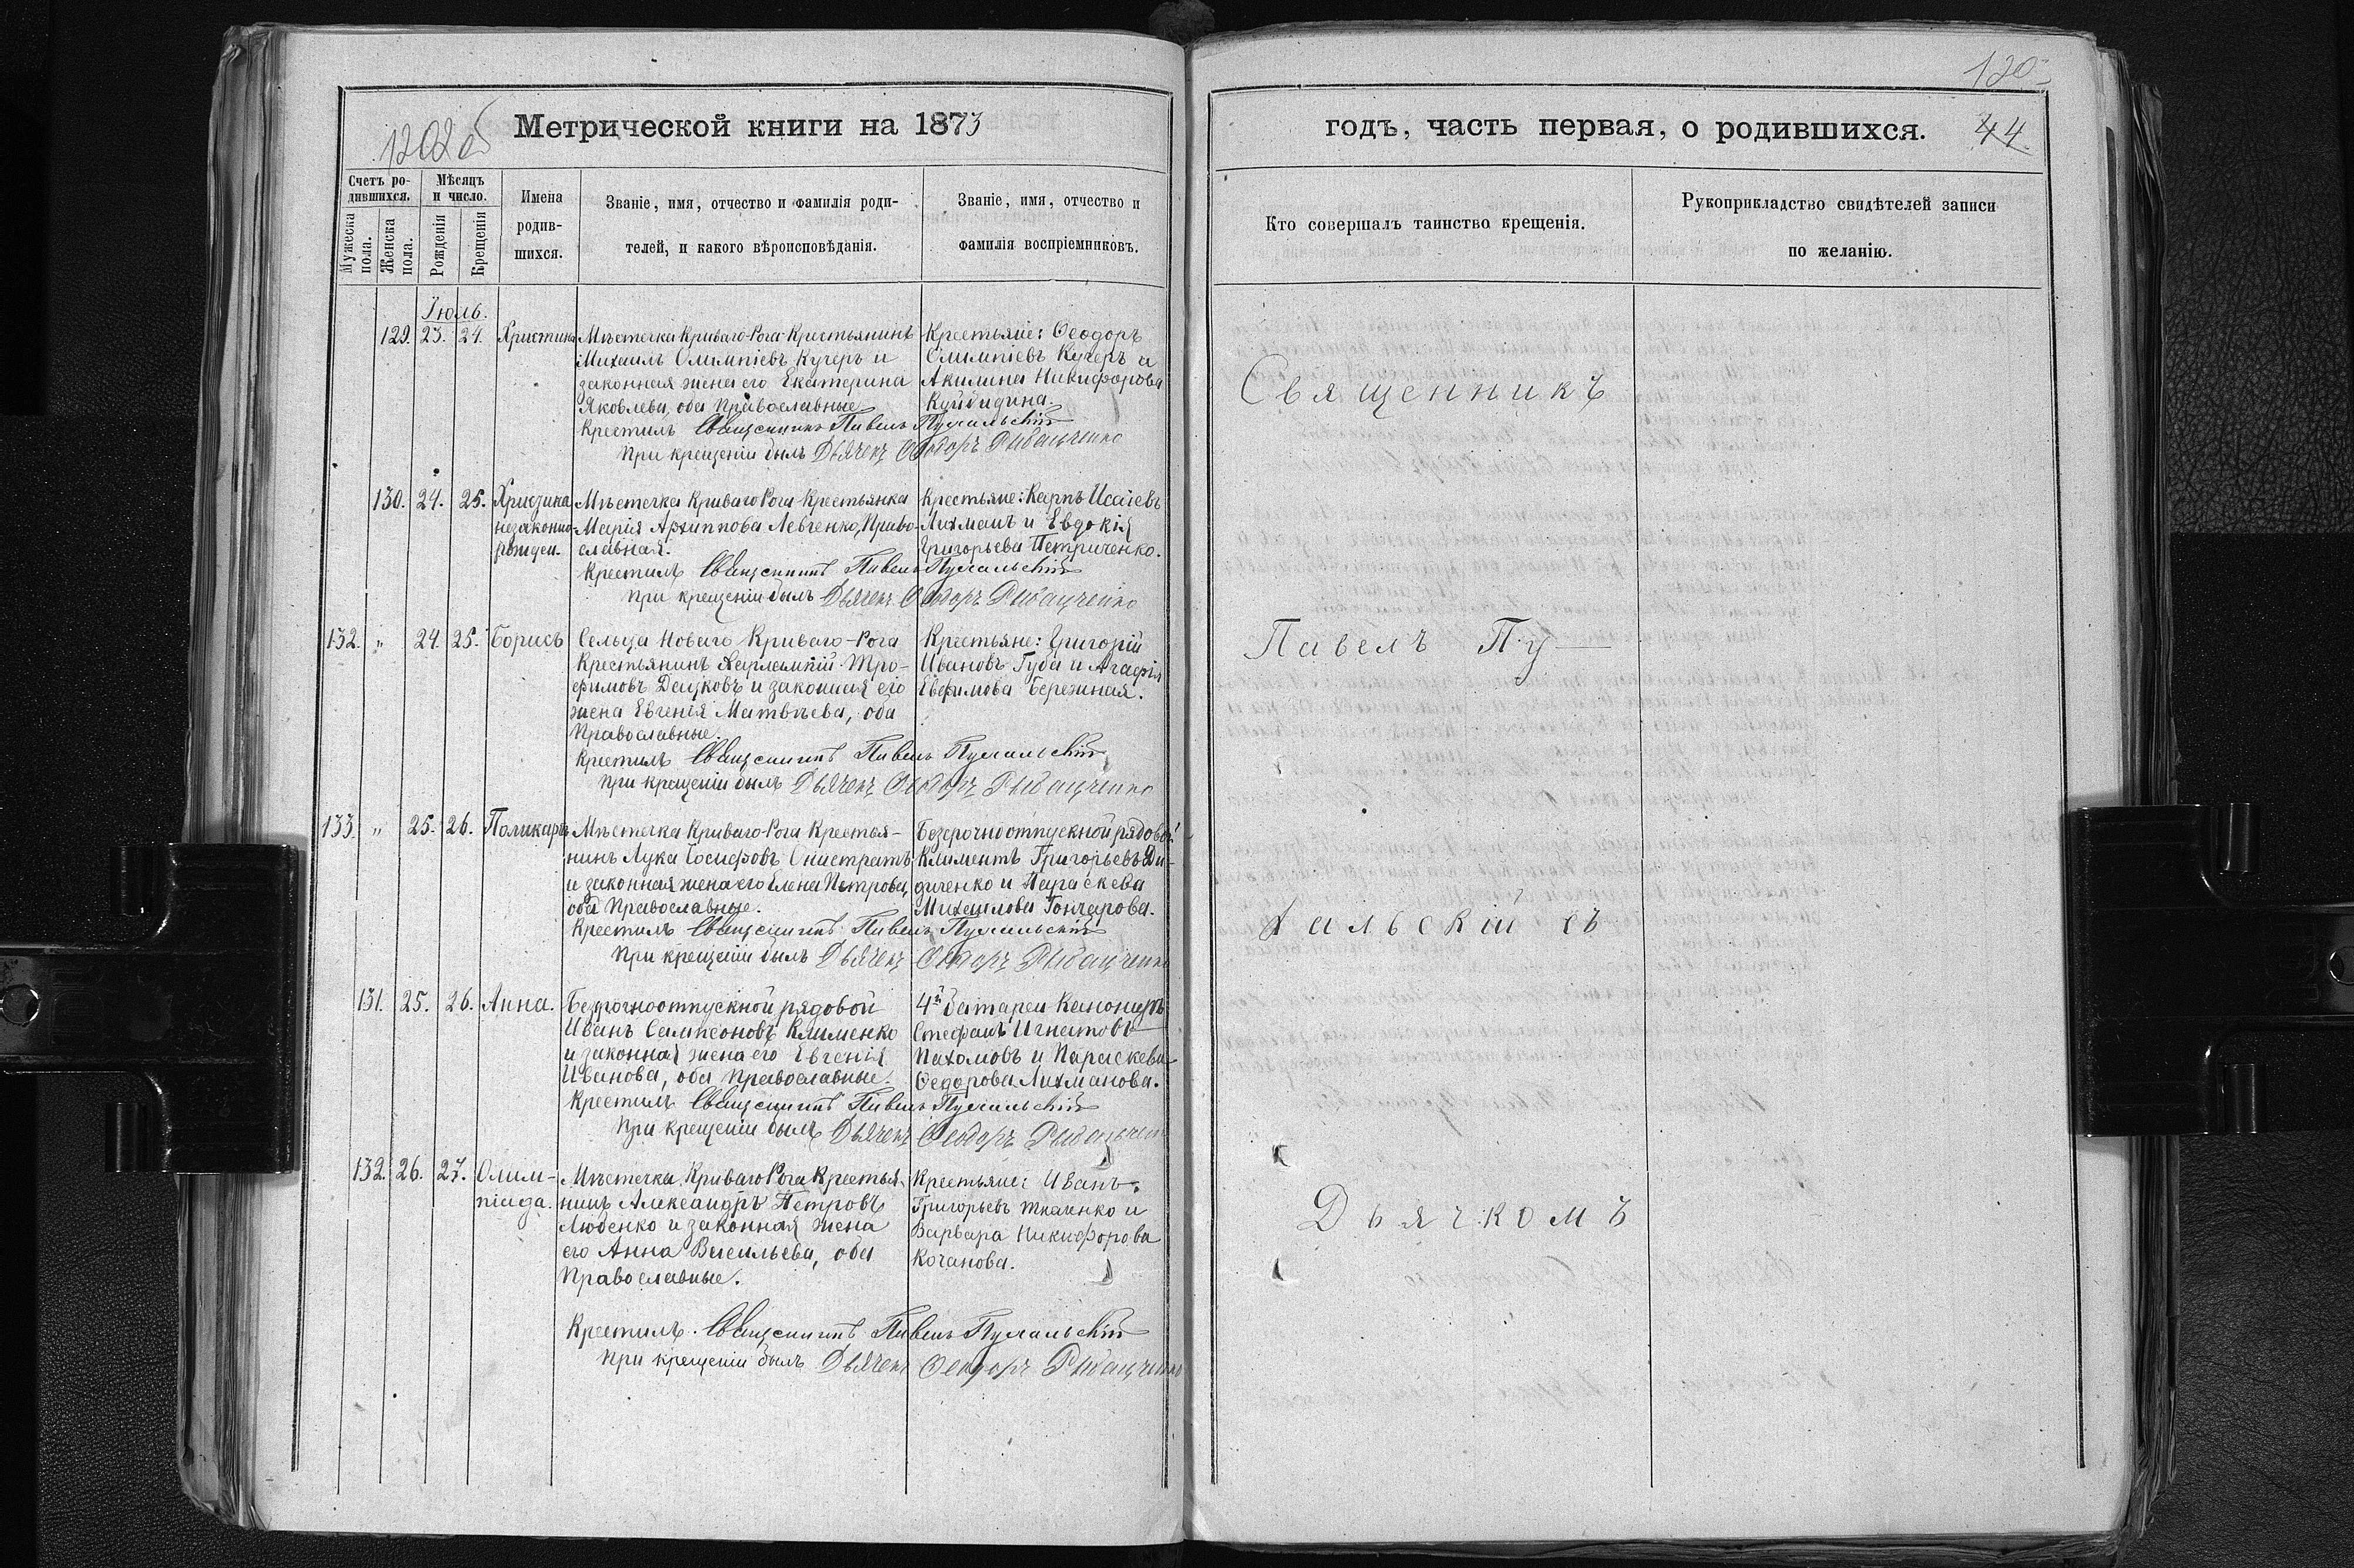 120
120 об
Метрической книги на 1873
годъ, часть первая, о родившихся.
44
Счетъ ро-
дившихся.
Мѣсяцъ
и число.
Мужеска
пола.
Женска
пола.
Рожденія
Крещенія
Имена
родив-
шихся.
Званіе, имя, отчество и фамилія роди-
телей, и какого вѣроисповѣданія.
Званіе, имя, отчество и
фамилія воспріемниковъ.
Кто совершалъ таинство крещенія.
Рукоприкладство свидѣтелей записи
по желанію.
Іюль.
129. 23. 24. Христина
Мѣстечка Криваго-Рога Крестьянинъ
Михаилъ Олимпіевъ Кучеръ и
законная жена его Екатерина
Яковлева, оба Православные
Крестьяне: Ѳеодоръ
Олимпіевъ Кучеръ и
Акилина Никифорова
Крестилъ Священникъ Павелъ
При крещеніи былъ Дьячекъ Ѳеодоръ
130. 24. 25. Христина
незаконно-
рожден.
Мѣстечка Криваго Рога Крестьянка
Марія Архиппова Левченко, Право-
славная.
Крестьяне: Карпъ Исаіевъ
Лихманъ и Евдокія
Григорьева Петриченко.
Крестилъ Священникъ Павелъ
При крещеніи былъ Дьячекъ Ѳеодоръ
132. " 24. 25. Борисъ
Сельца Новаго Криваго-Рога
Крестьянинъ Харлампій Тро-
фимовъ и законная его
жена Евгенія Матвѣева, оба
Православные.
Крестьяне: Григорій
Ивановъ Губа и Агафія
Евфимова Бережная.
Крестилъ Священникъ Павелъ
При крещеніи былъ Дьячекъ Ѳеодоръ
133. " 25. 26. Поликарпъ
Мѣстечка Криваго-Рога Крестья-
нинъ Лука Іосифовъ Онистратъ
и законная жена его Елена Петрова,
оба Православные.
Безсрочноотпускной рядовой
Климентъ Григорьевъ Ди-
диченко и Параскева
Михайлова Гончарова.
Крестилъ Священникъ Павелъ
При крещеніи былъ Дьячекъ Ѳеодоръ
131. 25. 26. Анна.
Безсрочноотпускной рядовой
Иванъ Сампсоновъ Клименко
и законная жена его Евгенія
Иванова, оба Православные.
4й батареи Канониръ
Стефанъ Игнатовъ
Пахомовъ и Параскева
Ѳеодорова Лихманова.
Крестилъ Священникъ Павелъ
При крещеніи былъ Дьячекъ Ѳеодоръ
132. 26. 27. Олим-
піада.
Мѣстечка Криваго Рога Крестья-
нинъ Александръ Петровъ
Любенко и законная жена
его Анна Васильева, оба
Православные.
Крестьяне: Иванъ
Григорьевъ Ткаченко и
Варвара Никифорова
Кочанова.
Крестилъ Священникъ Павелъ
При крещеніи былъ Дьячекъ Ѳеодоръ
Священникъ
Павелъ Пу
хальскій съ
Дьячкомъ